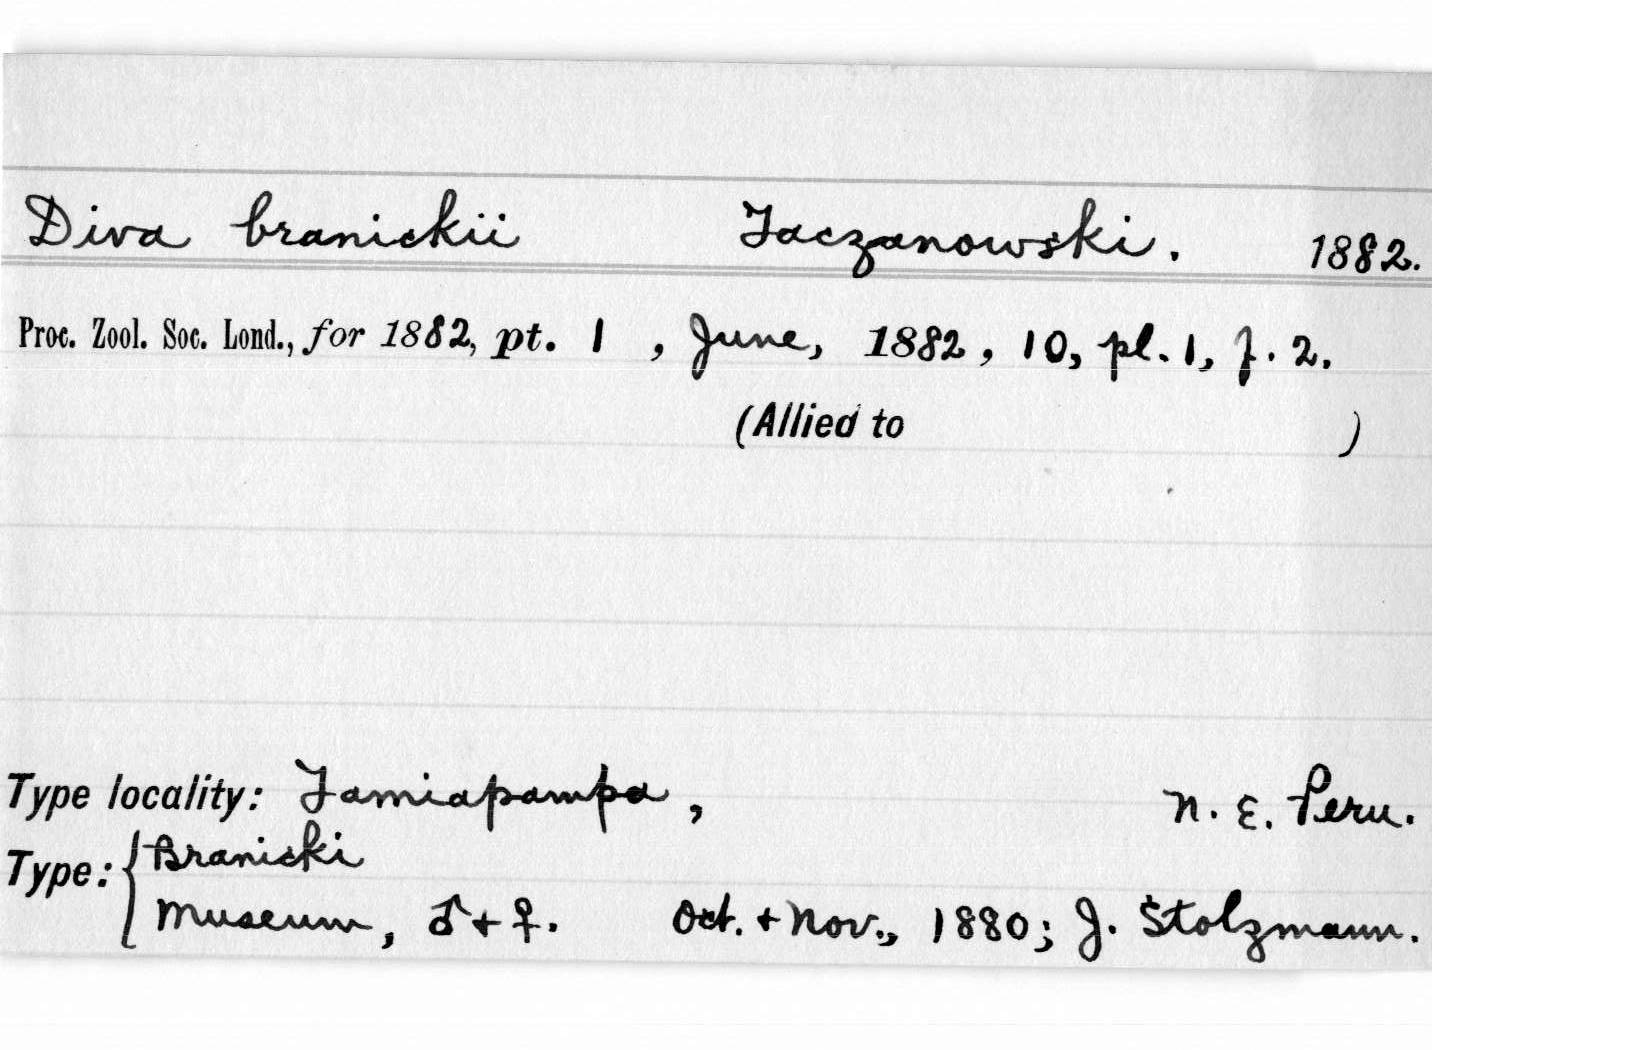 Diva branickii Taczanowski. 1882.
Proc. Zool. Soc. Lond., for 1882, pt. 1, June, 1882, 10, pl. 1, f. 2.
(Allied to )
Type locality: Tamiapampa, N. E. Peru.
Type: { Branicki
Museum, ♂ + ♀. Oct. + Nov., 1880; J. Stolzmann.